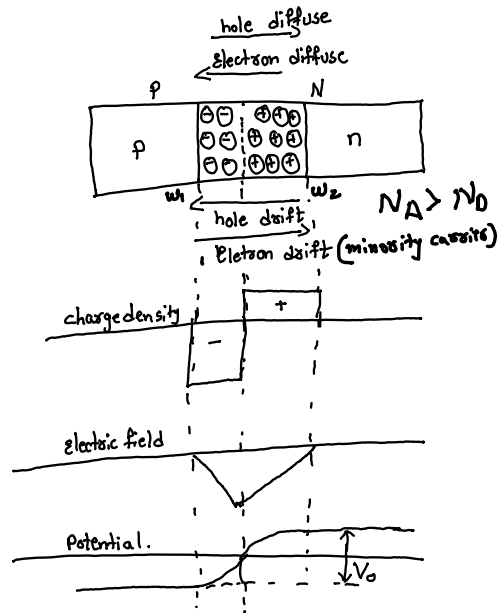 hole diffuse
Electron diffuse
P N
⊖ ⊖ ⊕ ⊕ ⊕
p ⊖ ⊖ ⊕ ⊕ ⊕ n
⊖ ⊖ ⊕ ⊕ ⊕
w₁ w₂
hole drift
N_A > N_D
Eletron drift (minority carrits)
+
charge density
-
Electric field
Potential.
V₀